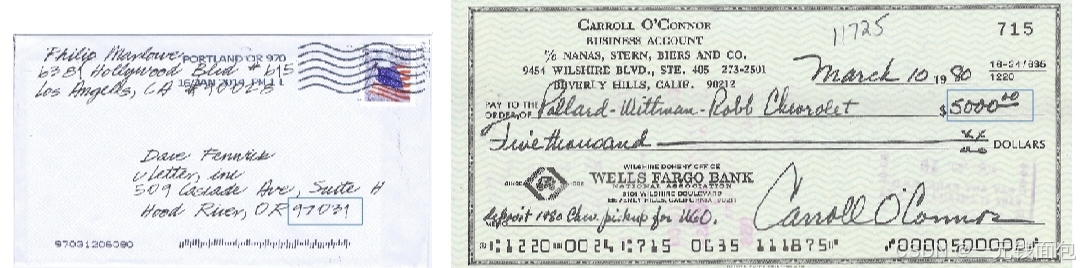 Philip Marlowe
PORTLAND OR 970
6381 Hollywood Blvd # 615
16 JAN 2014 PM 1 L
Los Angells, CA # 90028
Dave Fennwick
vLetter, inc
509 Cascade Ave, Suite H
Hood River, OR 97031
97031206090
CARROLL O'CONNOR
BUSINESS ACCOUNT
% NANAS, STERN, BIERS AND CO.
9454 WILSHIRE BLVD., STE. 405 273-2501
BEVERLY HILLS, CALIF. 90212
11725
715
March 10 1980
16-24/836
1220
PAY TO THE
ORDER OF Pollard-Wittman-Robb Chevrolet $5000.00
Five thousand XX DOLLARS
WILSHIRE DOHENY OFFICE
SINCE 1852
WELLS FARGO BANK
NATIONAL ASSOCIATION
9101 WILSHIRE BOULEVARD
BEVERLY HILLS, CALIFORNIA 90211
deposit 1980 Chev. pickup for UGO. Carroll O'Connor
1220 0024 715 0635 111875 0000500000
CSDN
无钱面包